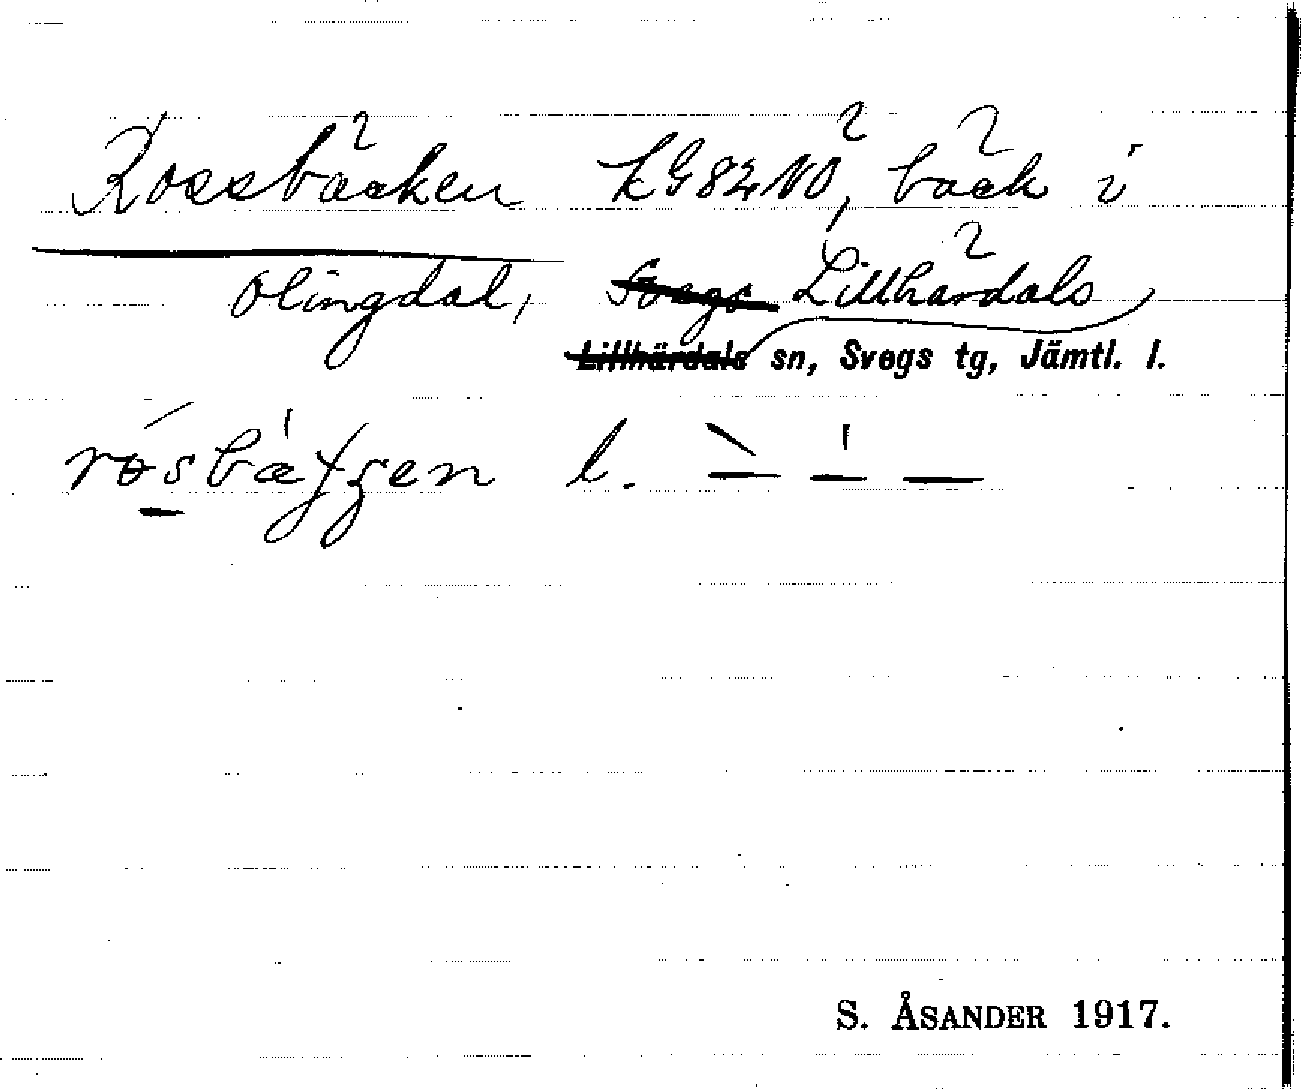 Rossbäcken LG82NO, bäck i
Olingdal, Svegs Lillhärdals
Lillhärdals sn, Svegs tg, Jämtl. l.
l.
S. ÅSANDER 1917.